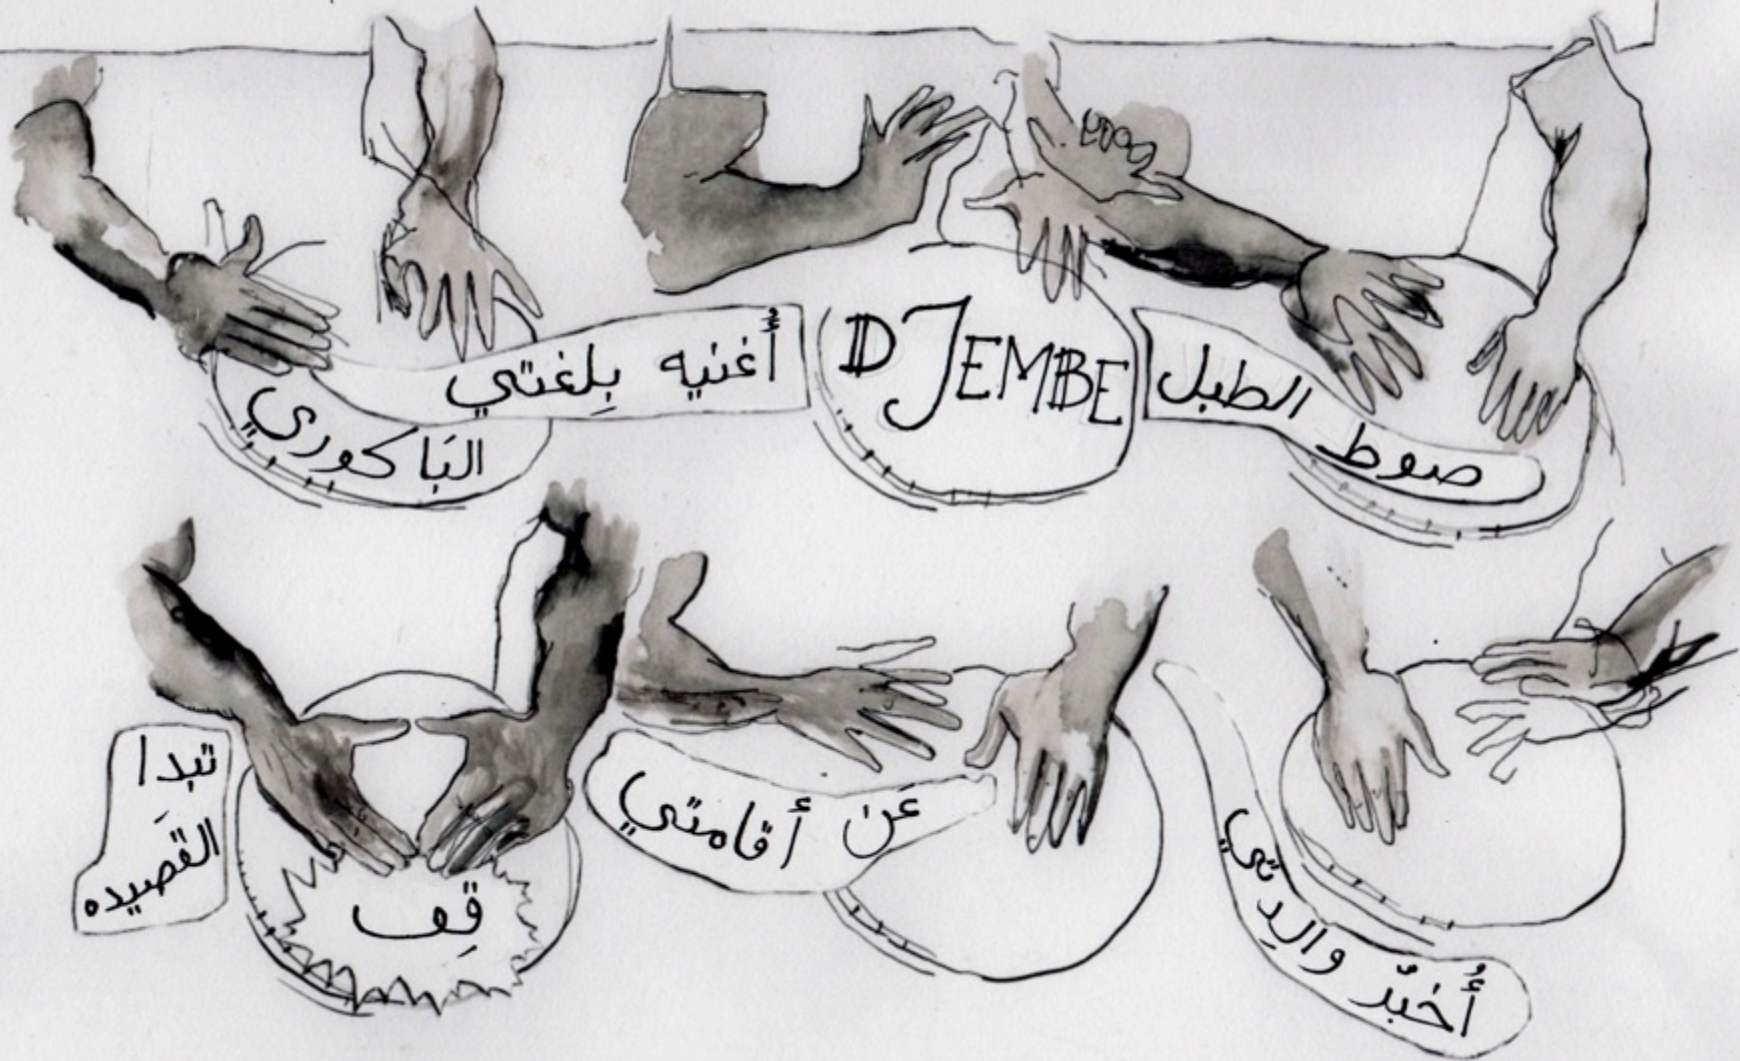 صوط
الطبل
DJEMBE
أُغنيه بِلغتي
البَاكوري
أُخبٌر والِدتي
عَن أقامتي
قِف
تبدا
القَصِيده